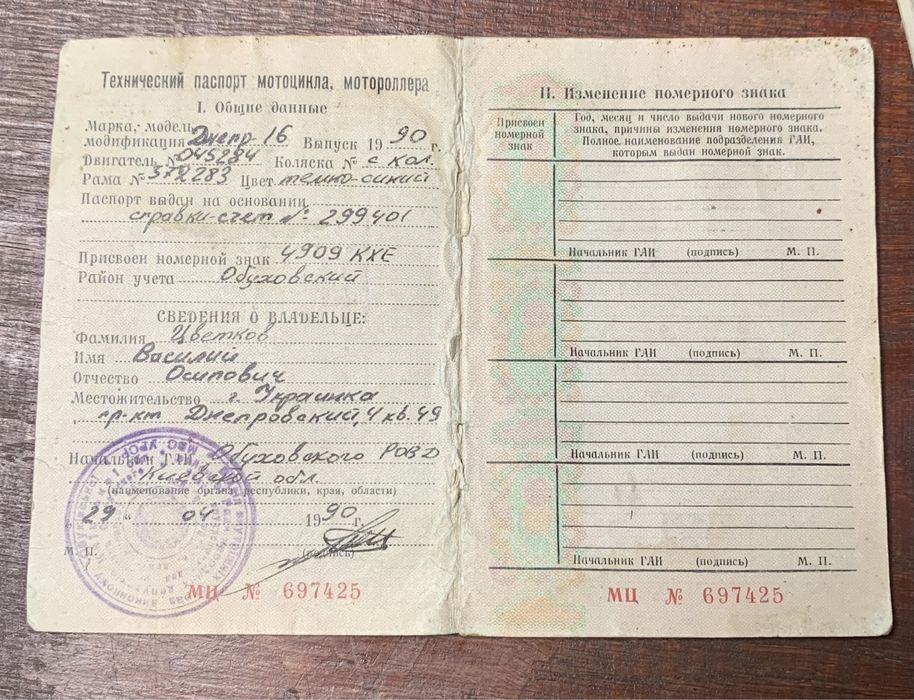 Технический паспорт мотоцикла, мотороллера
I. Общие данные
Марка, модель,
модификация Днепр-16 Выпуск 1990 г.
Двигатель № 045284 Коляска № с кол.
Рама № 372283 Цвет темно-синий
Паспорт выдан на основании
справки-счет № 299401
Присвоен номерной знак 4909 КХЕ
Район учета Обуховский
СВЕДЕНИЯ О ВЛАДЕЛЬЦЕ:
Фамилия Цветков
Имя Василий
Отчество Осипович
Местожительство г. Украинка
пр-кт Днепровский, 4 кв. 49
Начальник ГАИ Обуховского РОВД
Киевской обл
(наименование органа республики, края, области)
29 " 04 1990 г.
М. П. (подпись)
МЦ № 697425
II. Изменение номерного знака
Присвоен
номерной
знак
Год, месяц и число выдачи нового номерного
знака, причины изменения номерного знака.
Полное наименование подразделения ГАИ,
которым выдан номерной знак.
Начальник ГАИ (подпись) М. П.
Начальник ГАИ (подпись) М. П.
Начальник ГАИ (подпись) М. П.
Начальник ГАИ (подпись) М. П.
МЦ № 697425